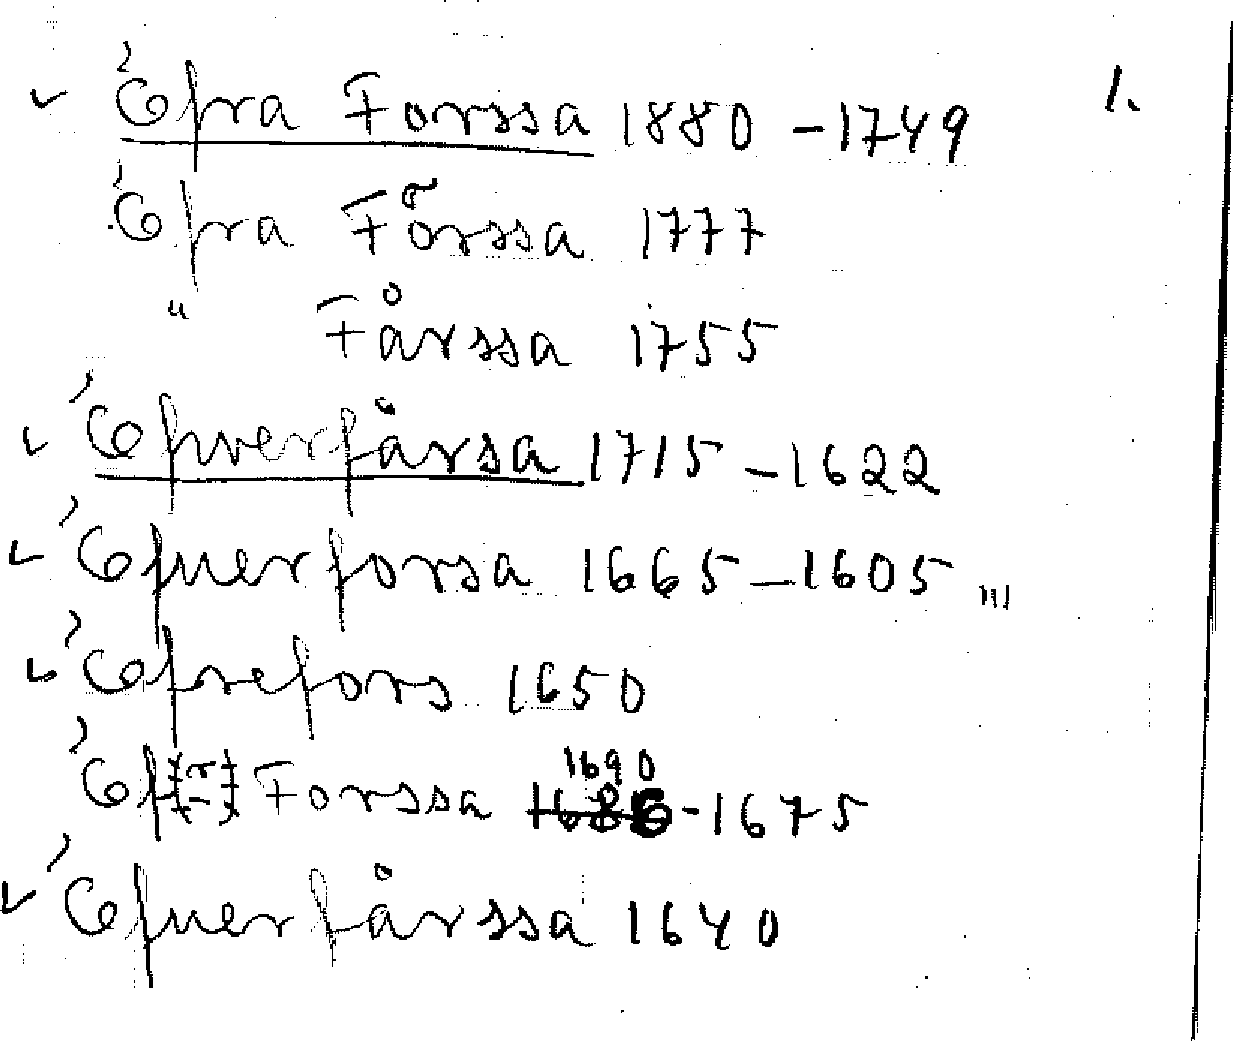 ✓ Öfra Forssa 1880 – 1749 1.
Öfra Förssa 1777
" Fårssa 1755
✓ Öfverfårsa 1715 – 1622
✓ Öfuerforsa 1665 – 1605 „,
✓ Öfrefors 1650
1690
Forssa 1686 - 1675
✓ Öfuerfårssa 1640